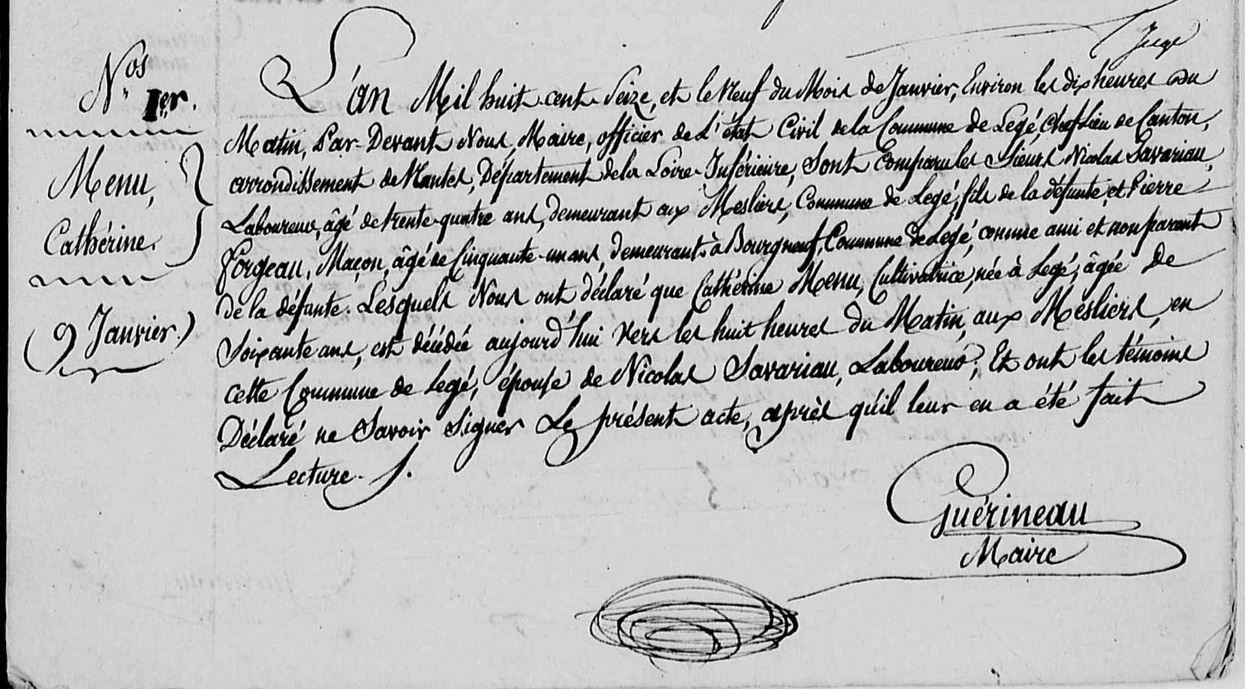 Juge
Nos 1er.
Menu,
Cathérine.
(9 Janvier.)
L'an Mil huit-cent-Seize, et le Neuf du Mois de Janvier, Environ les dix heures du
Matin, Par-Devant Nous, Maire, officier de L'état Civil de la Commune de Legé, Chef-Lieu de Canton,
arrondissement de Nantes, Département de la Loire-Inférieure, Sont Comparu les Sieurs Nicolas Savariau,
Laboureur, âgé de trente-quatre ans, demeurant aux Mesliers, Commune de Legé, fils de la défunte, et Pierre
Forgeau, Maçon, âgé de Cinquante-un ans, demeurants à Bourgneuf, Commune de Legé, comme ami et non parant
de la défunte. Lesquels Nous ont déclaré que Cathérine Menu, Cultivatrice, née à Legé, âgée de
Soixante ans, est décédée aujourd'hui vers les huit heures du Matin, aux Mesliers, en
cette Commune de Legé, épouse de Nicolas Savariau, Laboureur, Et ont les témoins
Déclaré ne Savoir Signer Le présent acte, après qu'il leur en a été fait
Lecture.
Guérineau
Maire